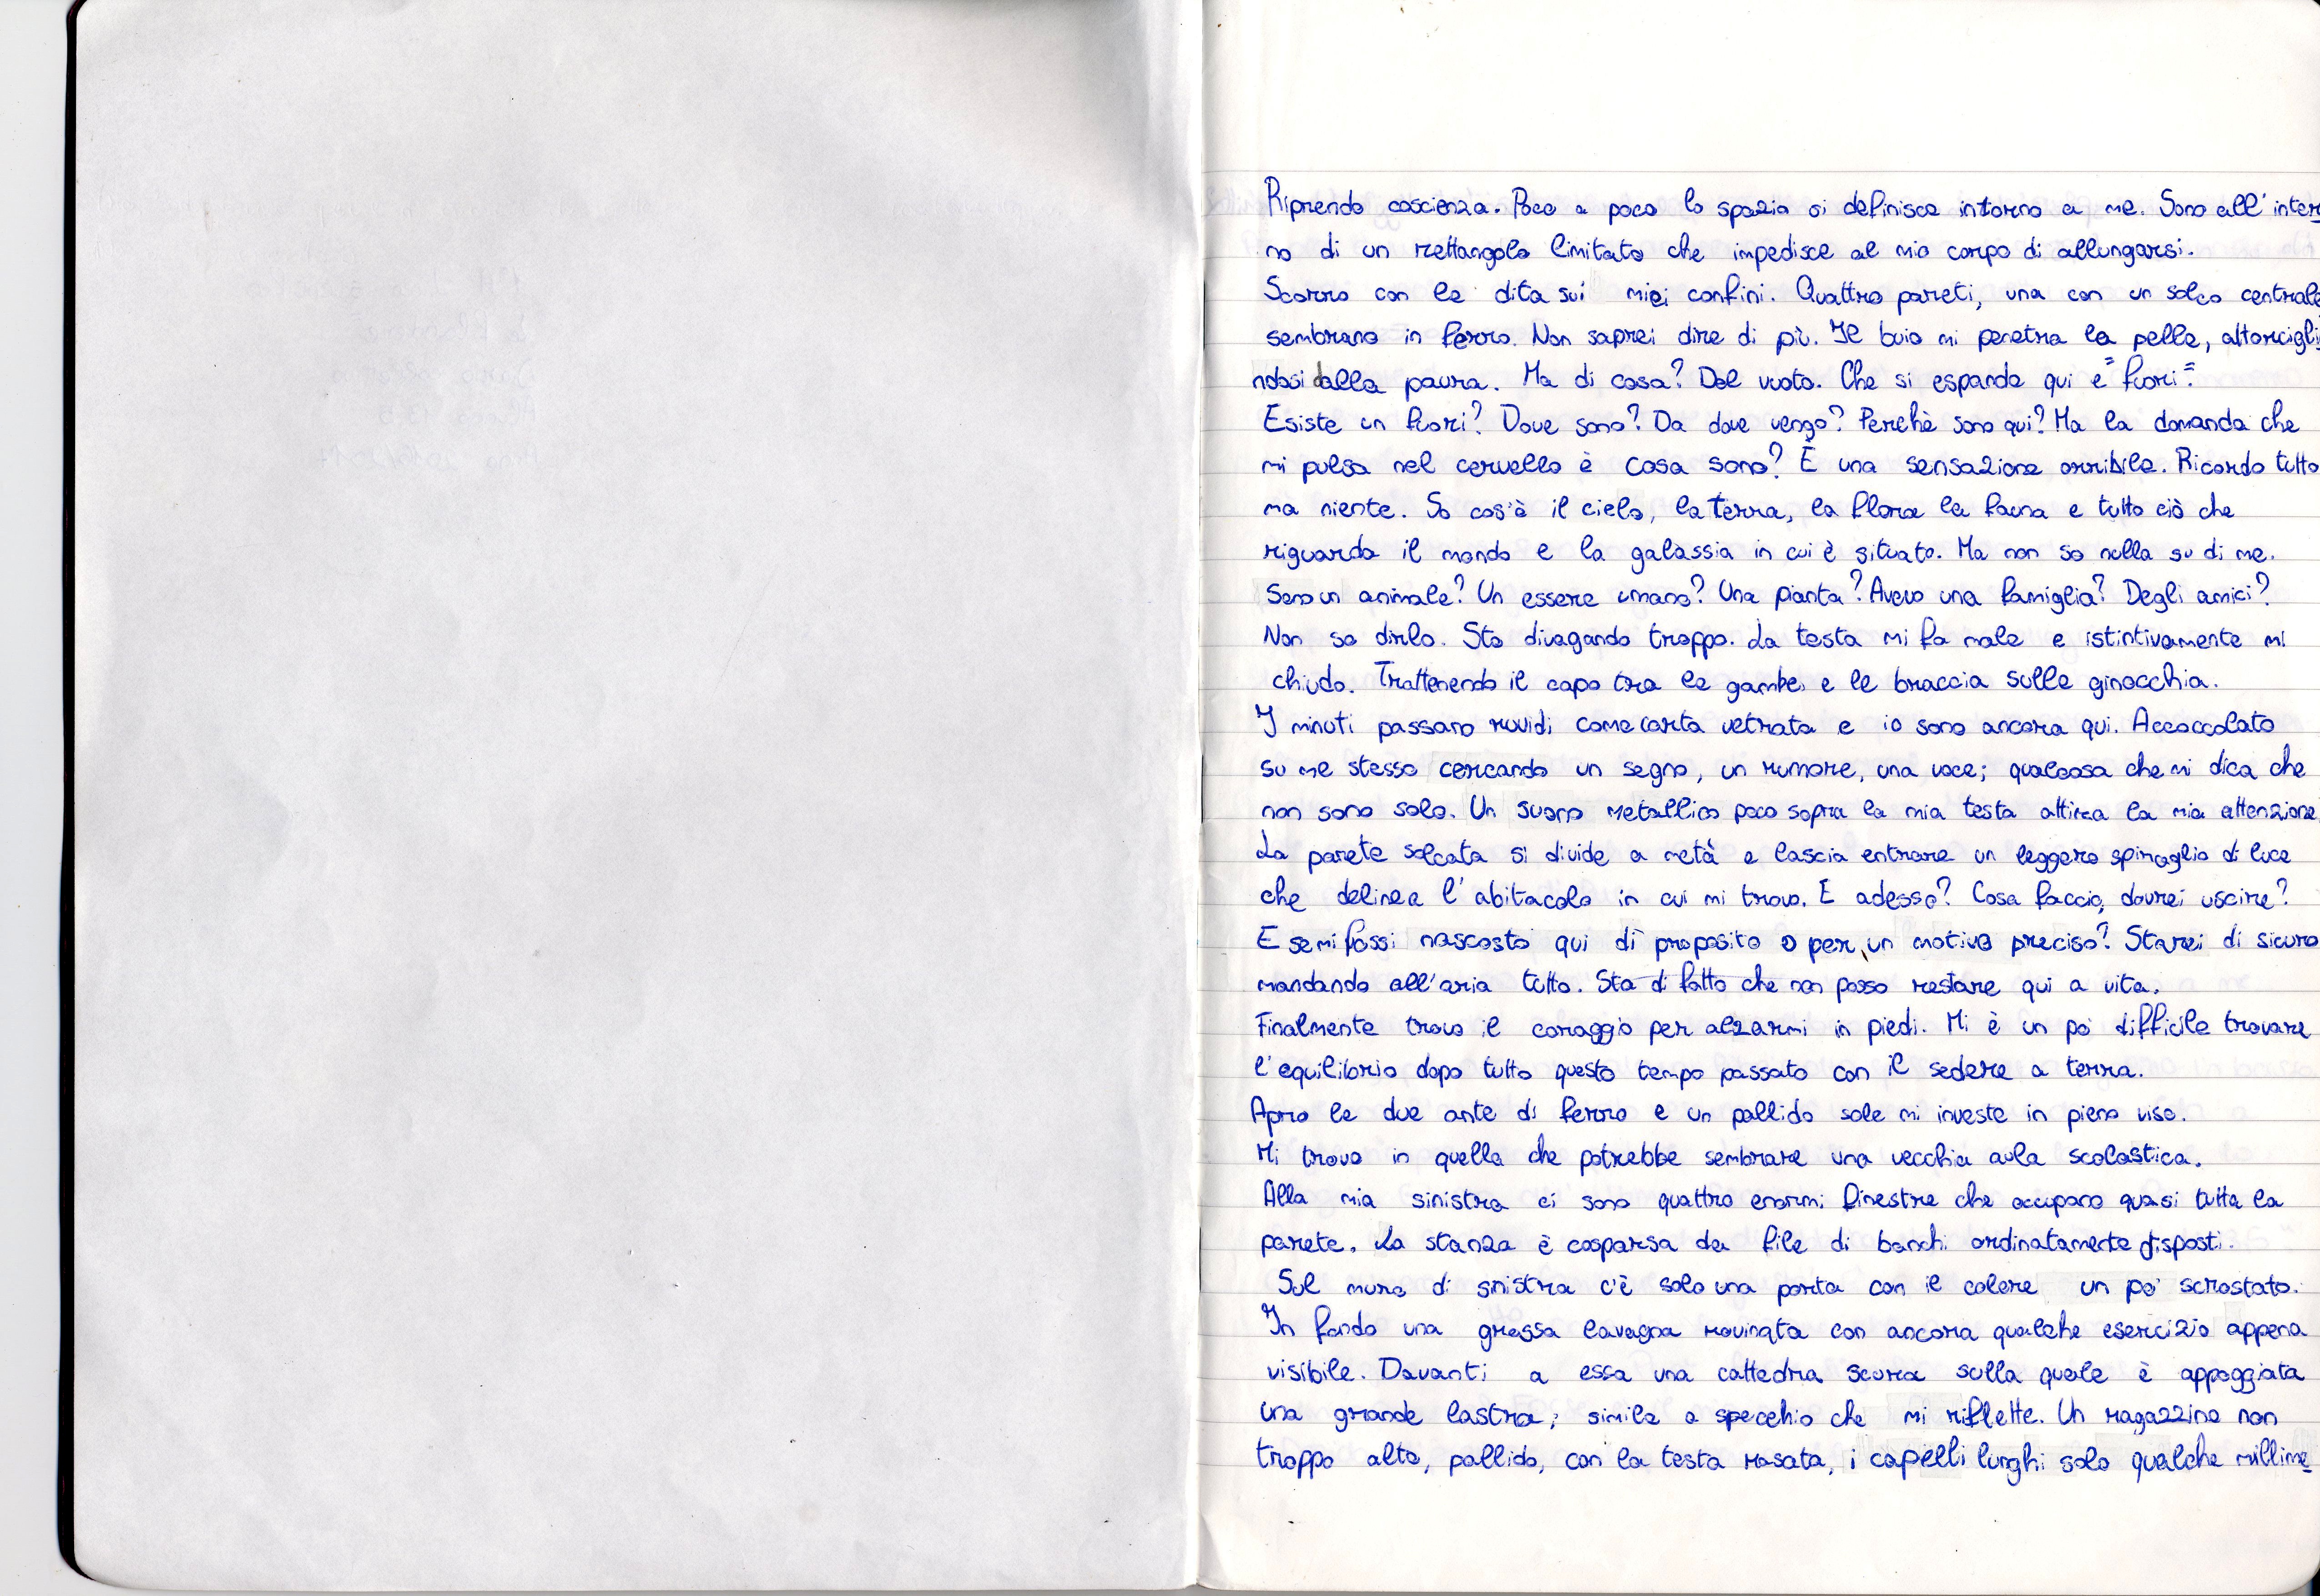 Riprendo coscienza. Poco a poco lo spazio si definisce intorno a me. Sono all'inter
no di un rettangolo limitato che impedisce al mio corpo di allungarsi.
Scorro con le dita sui miei confini. Quattro pareti, una con un solco centrale
sembrano in ferro. Non saprei dire di più. Il buio mi penetra la pelle, attorcigli
ndosi alla paura. Ma di cosa? Del vuoto. Che si espande qui e "fuori".
Esiste un fuori? Dove sono? Da dove vengo? Perchè sono qui? Ma la domanda che
mi pulsa nel cervello è cosa sono? È una sensazione orribile. Ricordo tutto
ma niente. So cos'è il cielo, la terra, la flora la fauna e tutto ciò che
riguarda il mondo e la galassia in cui è situato. Ma non so nulla su di me.
Sono un animale? Un essere umano? Una pianta? Avevo una famiglia? Degli amici?
Non so dirlo. Sto divagando troppo. La testa mi fa male e istintivamente mi
chiudo. Trattenendo il capo tra le gambe, e le braccia sulle ginocchia.
I minuti passano ruvidi come carta vetrata e io sono ancora qui. Accoccolato
su me stesso cercando un segno, un rumore, una voce; qualcosa che mi dica che
non sono solo. Un suono metallico poco sopra la mia testa attira la mia attenzione
La parete solcata si divide a metà e lascia entrare un leggero spiraglio di luce
che delinea l'abitacolo in cui mi trovo. E adesso? Cosa faccio, dovrei uscire?
E se mi fossi nascosto qui di proposito o per un motivo preciso? Starei di sicuro
mandando all'aria tutto. Sta di fatto che non posso restare qui a vita.
Finalmente trovo il coraggio per alzarmi in piedi. Mi è un po' difficile trovare
l'equilibrio dopo tutto questo tempo passato con il sedere a terra.
Apro le due ante di ferro e un pallido sole mi investe in pieno viso.
Mi trovo in quella che potrebbe sembrare una vecchia aula scolastica.
Alla mia sinistra ci sono quattro enormi finestre che occupano quasi tutta la
parete. La stanza è cosparsa da file di banchi ordinatamente disposti.
Sul muro di sinistra c'è solo una porta con il colore un po' scrostato.
In fondo una grossa lavagna rovinata con ancora qualche esercizio appena
visibile. Davanti a essa una cattedra scura sulla quale è appoggiata
una grande lastra, simile a specchio che mi riflette. Un ragazzino non
troppo alto, pallido, con la testa rasata, i capelli lunghi solo qualche millime